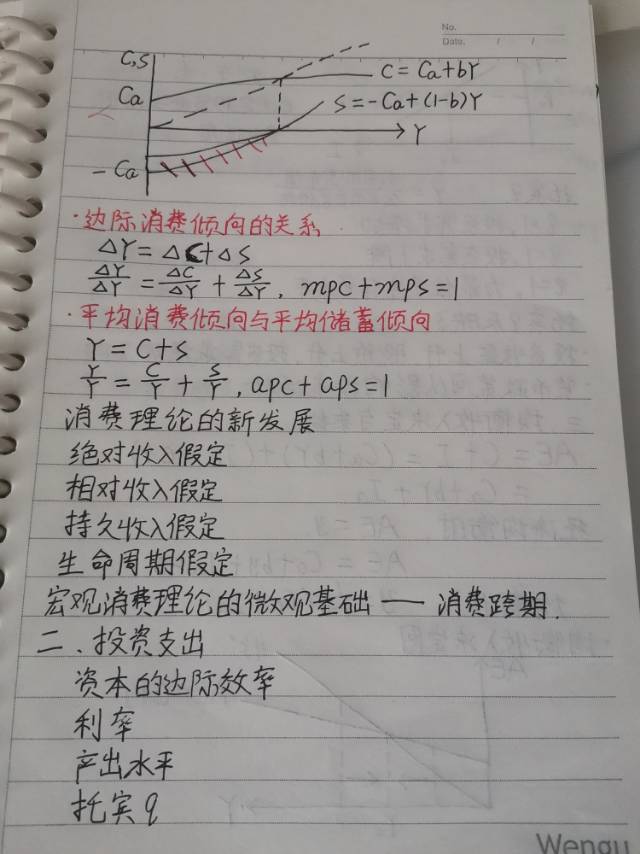 No.
Date. / /
C,S
C = Ca+bY
Ca
S=-Ca+(1-b)Y
Y
-Ca
·边际消费倾向的关系.
△Y=△C+△S
△Y/△Y=△C/△Y+△S/△Y, mpc+mps=1
·平均消费倾向与平均储蓄倾向
Y=C+S
Y/Y=C/Y+S/Y, apc+aps=1
消费理论的新发展
绝对收入假定
相对收入假定
持久收入假定
生命周期假定
宏观消费理论的微观基础——消费跨期.
二、投资支出
资本的边际效率
利率
产出水平
托宾q
Wengu